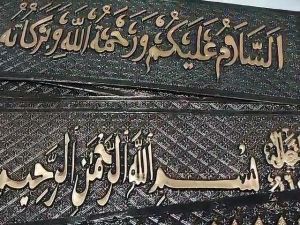 السَّلَامُ عَلَيْكُمْ وَرَحْمَةُ اللهِ وَبَرَكَاتُهُ
بِسْمِ اللهِ الرَّحْمٰنِ الرَّحِيمِ